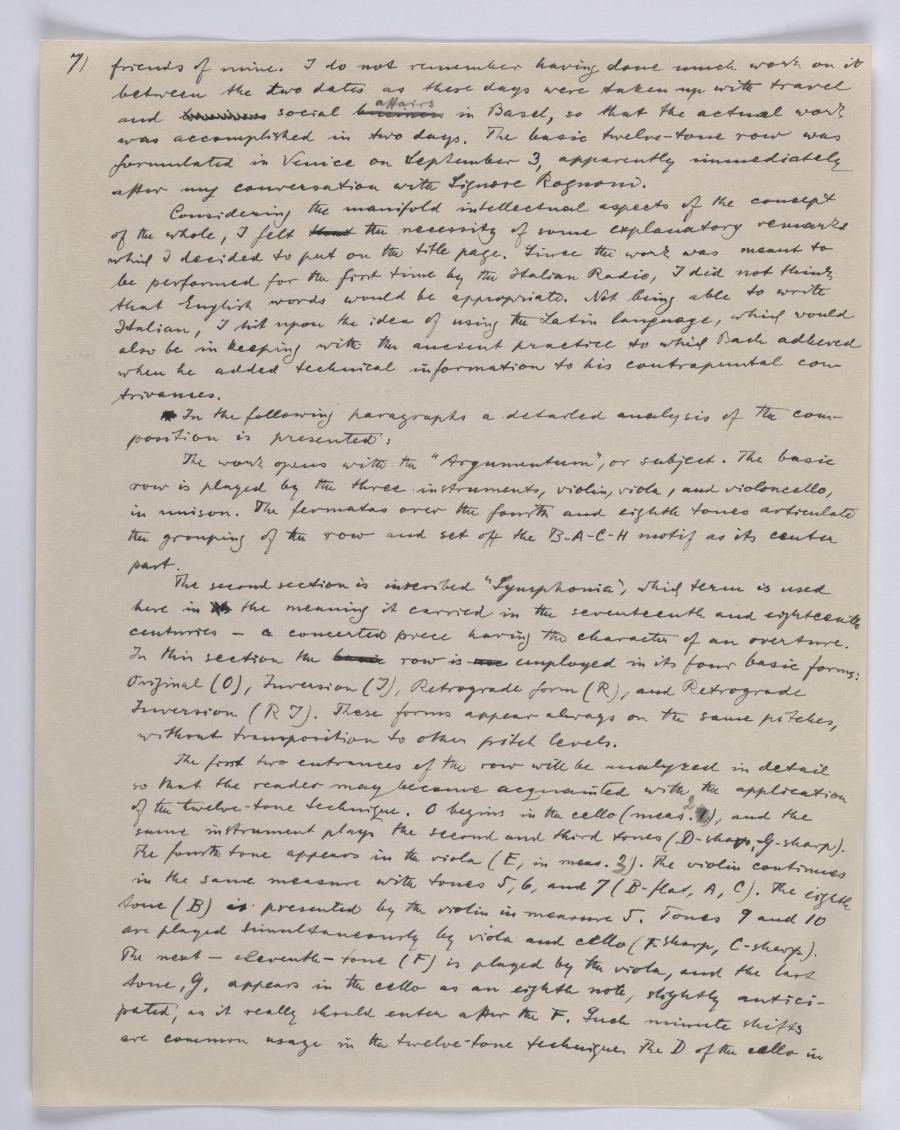 7) friends of mine. I do not remember having done much work on it
between the two dates as these days were taken up with travel
and social affairs in Basel, so that the actual work
was accomplished in two days. The basic twelve-tone row was
formulated in Venice on September 3, apparently immediately
after my conversation with Signore Rognoni.
Considering the manifold intellectual aspects of the concept
of the whole, I felt that the necessity of some explanatory remarks
which I decided to put on the title page. Since the work was meant to
be performed for the first time by the Italian Radio, I did not think
that English words would be appropriate. Not being able to write
Italian, I hit upon the idea of using the Latin language, which would
also be in keeping with the ancient practice to which Bach adhered
when he added technical information to his contrapuntal con-
trivances.
In the following paragraphs a detailed analysis of the com-
position is presented:
The work opens with the "Argumentum", or subject. The basic
row is played by the three instruments, violin, viola, and violoncello,
in unison. The fermatas over the fourth and eighth tones articulate
the grouping of the row and set off the B-A-C-H motif as its center
part.
The second section is inscribed "Symphonia", which term is used
here in the meaning it carried in the seventeenth and eighteenth
centuries – a concerted piece having the character of an overture.
In this section the basic row is employed in its four basic forms:
Original (O), Inversion (I), Retrograde form (R), and Retrograde
Inversion (RI). These forms appear always on the same pitches,
without transposition to other pitch levels.
The first two entrances of the row will be analyzed in detail
so that the reader may become acquainted with the application
of the twelve-tone technique. O begins in the cello (meas. 2), and the
same instrument plays the second and third tones (D-sharp, G-sharp).
The fourth tone appears in the viola (E, in meas. 3). The violin continues
in the same measure with tones 5, 6, and 7 (B-flat, A, C). The eighth
tone (B) is presented by the violin in measure 5. Tones 9 and 10
are played simultaneously by viola and cello (F-sharp, C-sharp).
The next – eleventh – tone (F) is played by the viola, and the last
tone, G, appears in the cello as an eighth note, slightly antici-
pated, as it really should enter after the F. Such minute shifts
are common usage in the twelve-tone technique. The D of the cello in